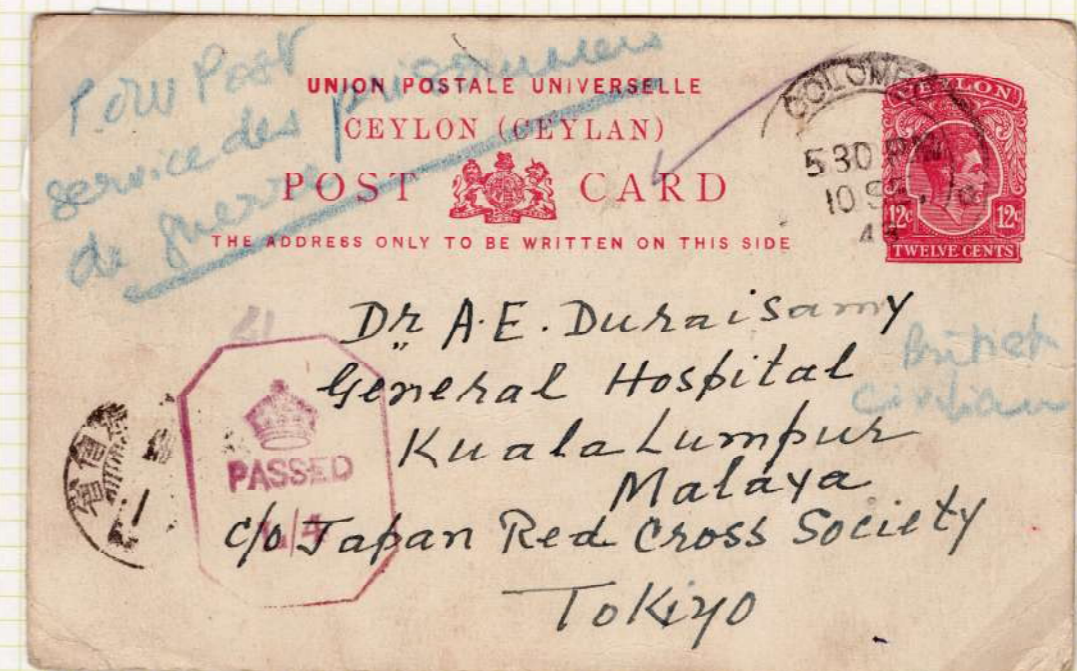 P.OW Post
service des prisonniers
de guerre
UNION POSTALE UNIVERSELLE
CEYLON (CEYLAN)
POST CARD
THE ADDRESS ONLY TO BE WRITTEN ON THIS SIDE
COLOMBO
530 PM
10 SE
43
CEYLON
12c 12c
TWELVE CENTS
Dr A.E. Duraisamy
General Hospital
Kuala Lumpur
Malaya
c/o Japan Red Cross Society
Tokiyo
British
Civilian
PASSED